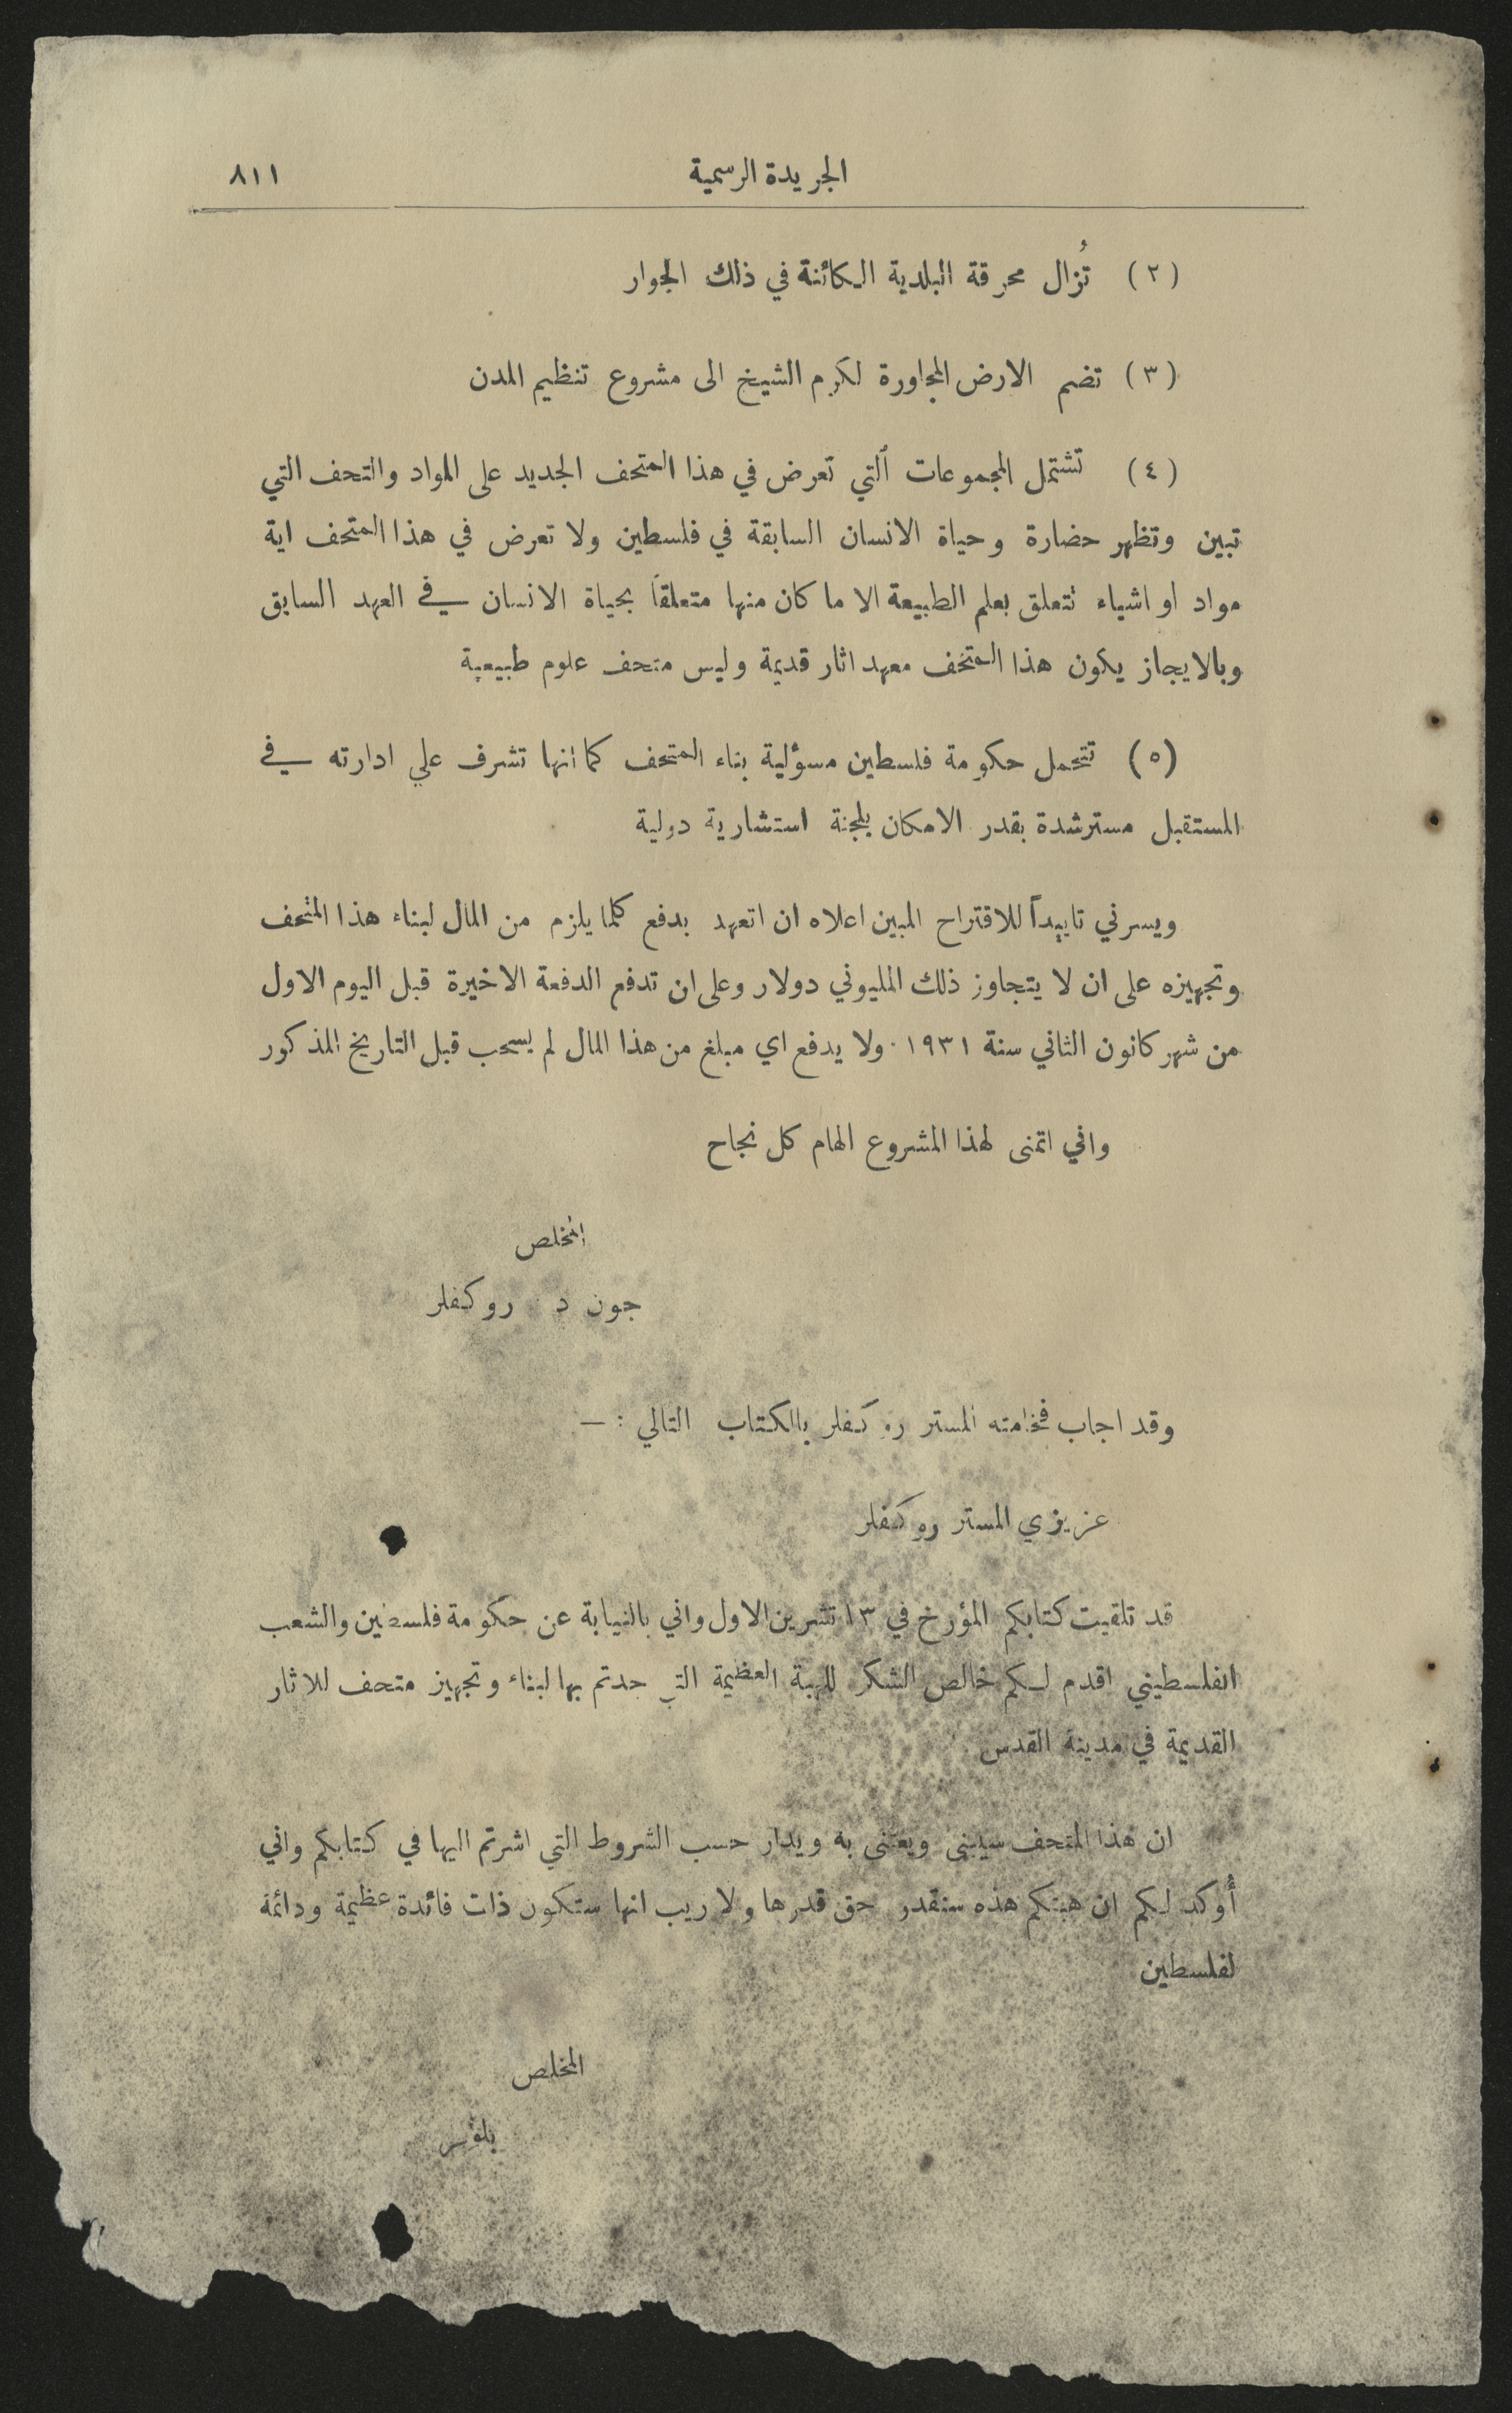 الجريدة الرسمية ٨١١
(٢) تُزال محرقة البلدية الكائنة في ذلك الجوار
(٣) تضم الارض المجاورة لكرم الشيخ الى مشروع تنظيم المدن
(٤) تشتمل المجموعات التي تعرض في هذا المتحف الجديد على المواد والتحف التي
تبين وتظهر حضارة وحياة الانسان السابقة في فلسطين ولا تعرض في هذا المتحف اية
مواد او اشياء تتعلق بعلم الطبيعة الا ما كان منها متعلقاً بحياة الانسان في العهد السابق
وبالايجاز يكون هذا المتحف معهد اثار قديمة وليس متحف علوم طبيعية
(٥) تتحمل حكومة فلسطين مسؤلية بناء المتحف كما انها تشرف علي ادارته في
المستقبل مسترشدة بقدر الامكان بلجنة استشارية دولية
ويسرني تاييداً للاقتراح المبين اعلاه ان اتعهد بدفع كلما يلزم من المال لبناء هذا المتحف
وتجهيزه على ان لا يتجاوز ذلك المليوني دولار وعلى ان تدفع الدفعة الاخيرة قبل اليوم الاول
من شهر كانون الثاني سنة ١٩٣١ . ولا يدفع اي مبلغ من هذا المال لم يسحب قبل التاريخ المذكور
واني اتمنى لهذا المشروع الهام كل نجاح
المخلص
جون د . روكفلر
وقد اجاب فخامته المستر روكفلر بالكتاب التالي : —
عزيزي المستر روكفلر
قد تلقيت كتابكم المؤرخ في ١٣ تشرين الاول واني بالنيابة عن حكومة فلسطين والشعب
الفلسطيني اقدم لكم خالص الشكر للهبة العظيمة التي جدتم بها لبناء وتجهيز متحف للاثار
القديمة في مدينة القدس .
ان هذا المتحف سيبنى ويعتنى به ويدار حسب الشروط التي اشرتم اليها في كتابكم واني
أُوكد لكم ان هبتكم هذه ستقدر حق قدرها ولا ريب انها ستكون ذات فائدة عظيمة ودائمة
لفلسطين
المخلص
بلومر